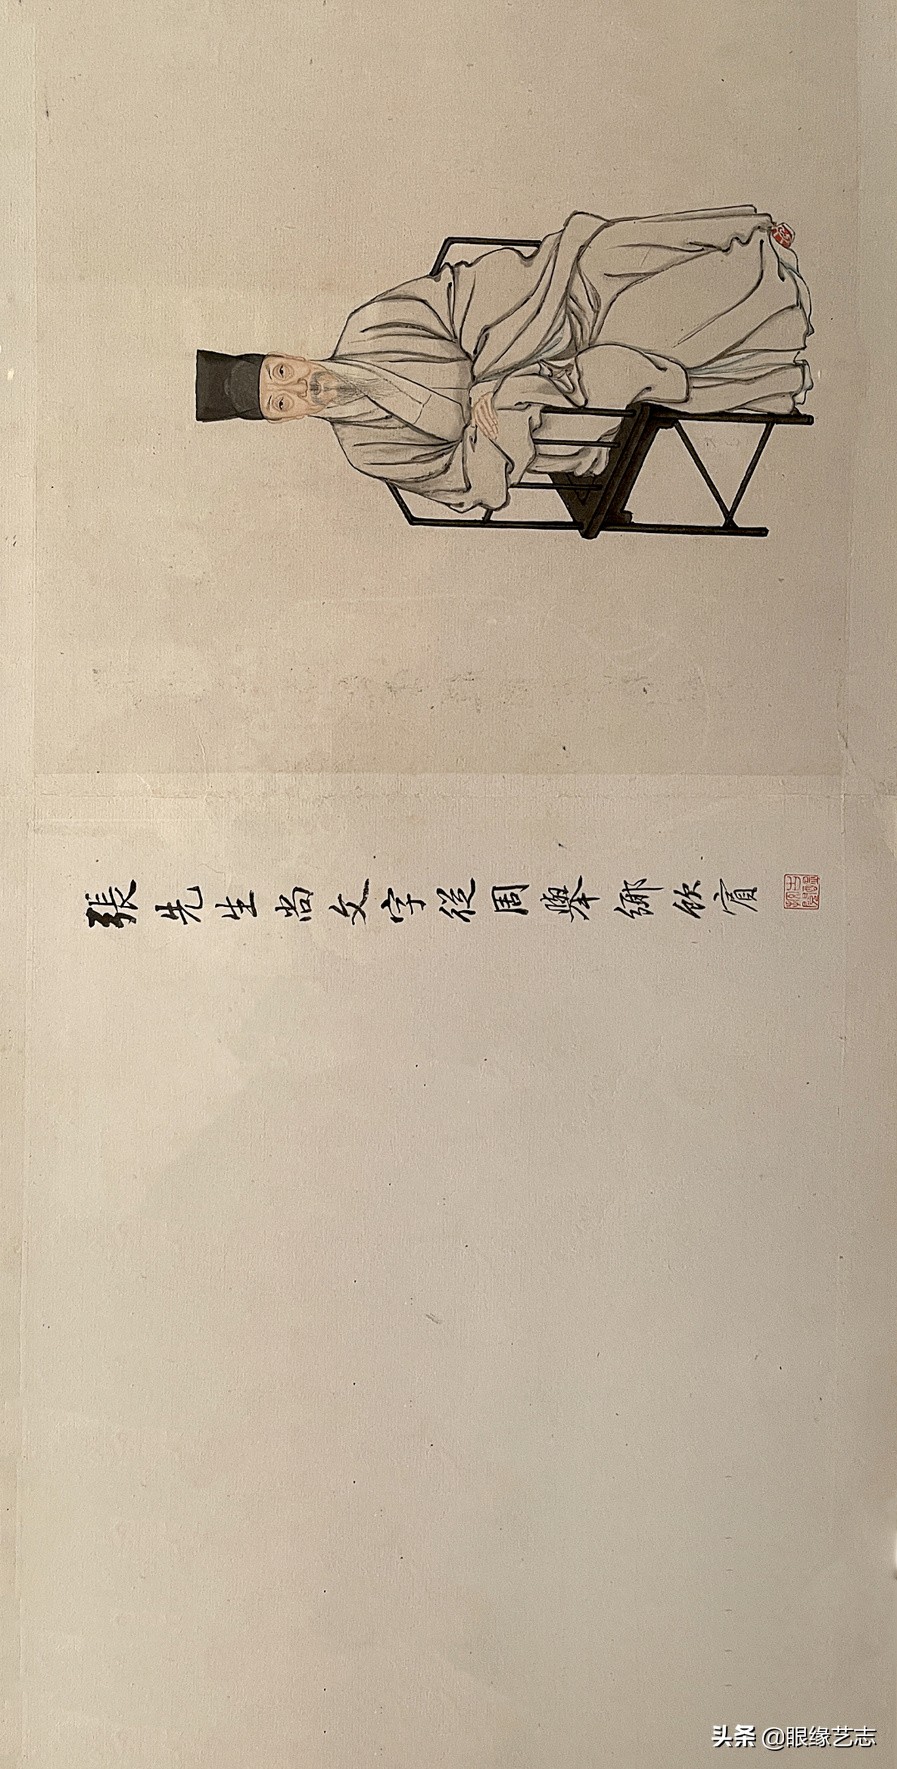 張先生尚文字從周舉鄉飲賓
头条 @眼缘艺志